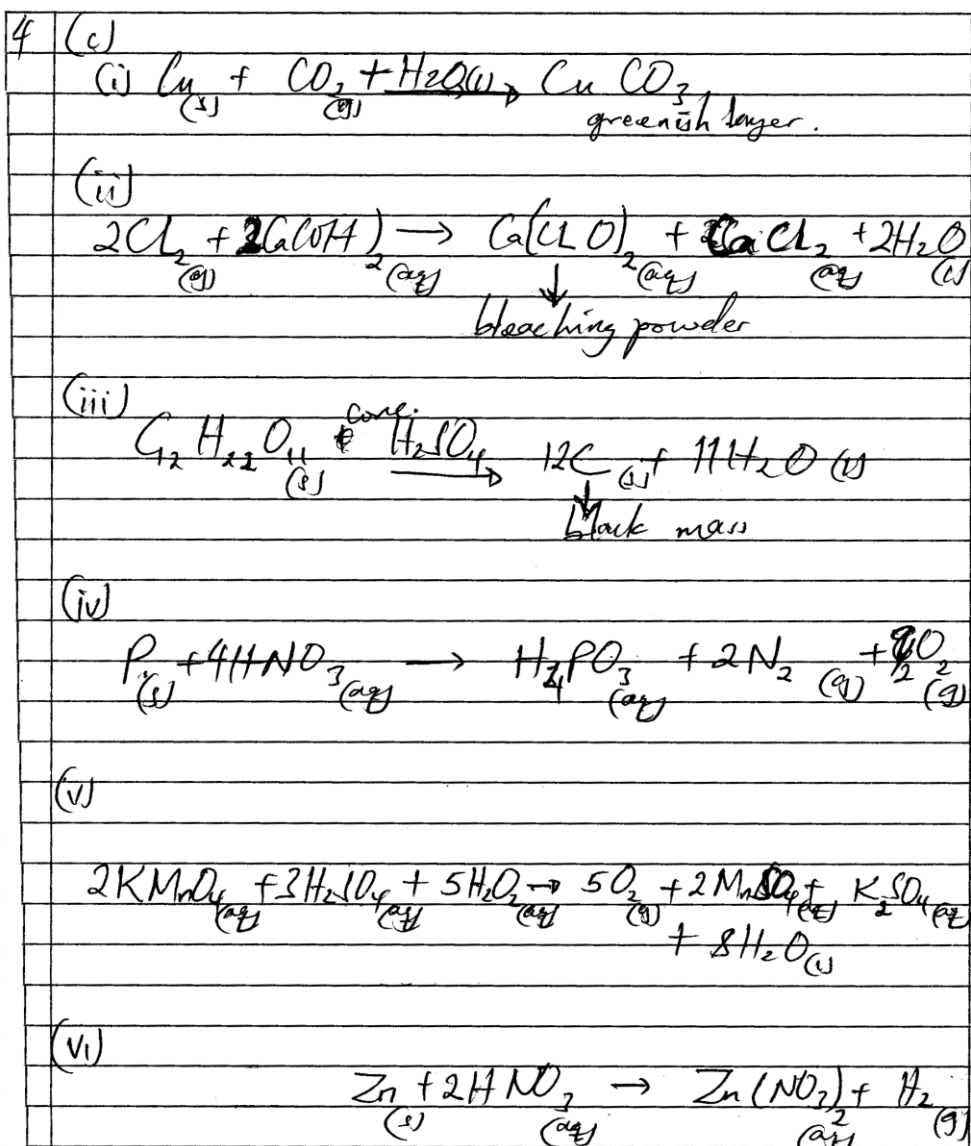 4 (c)
(i) Cu(s) + CO2(g) + H2O(l) → CuCO3
greenish layer.
(ii)
2Cl2(g) + 2Ca(OH)2(aq) → Ca(ClO)2(aq) + CaCl2(aq) + 2H2O(l)
↓
bleaching powder
(iii)
C12H22O11(s) conc. H2SO4 → 12C(s) + 11H2O(l)
↓
black mass
(iv)
P4(s) + 4HNO3(aq) → PO3(aq) + 2N2(g) + O2(g)
(v)
2KMnO4(aq) + 3H2SO4(aq) + 5H2O2(aq) → 5O2(g) + 2MnSO4(aq) + K2SO4(aq)
+ 8H2O(l)
(vi)
Zn(s) + 2HNO3(aq) → Zn(NO3)2(aq) + H2(g)